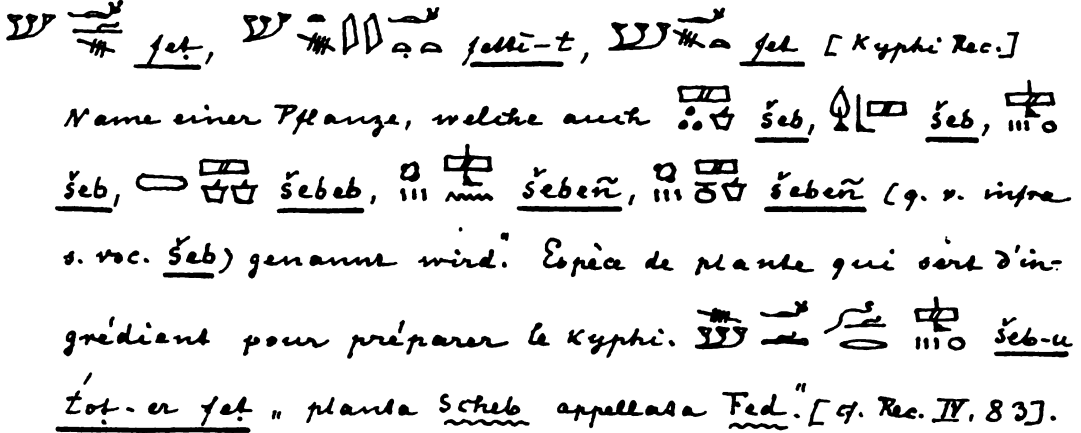 feṭ, fettî-t, fet [Kyphi Rec.]
Name einer Pflanze, welche auch šeb, šeb,
šeb, šebeb, šebeñ, šebeñ (q. v. infra
s. voc. šeb) genannt wird." Espèce de plante qui sert d'in-
grédient pour préparer le Kyphi. šeb-u
t́oṭ-er feṭ „planta Scheb appellata Fed." [cf. Rec. IV, 83].